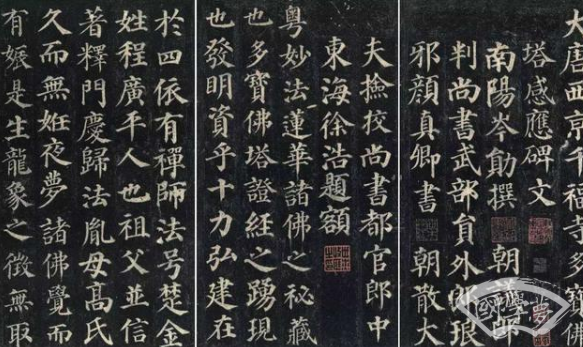 大唐西京千福寺多寶佛
塔感應碑文
南陽岑勛撰 朝議郎
判尚書武部員外郎琅
邪顏真卿書 朝散大
夫撿挍尚書都官郎中
東海徐浩題額
粵妙法蓮華諸佛之秘藏
也多寶佛塔證經之踴現
也發明資乎十力弘建在
於四依有禪師法号楚金
姓程廣平人也祖父並信
著釋門慶歸法胤母高氏
久而無妊夜夢諸佛覺而
有娠是生龍象之徵無取
國學夢